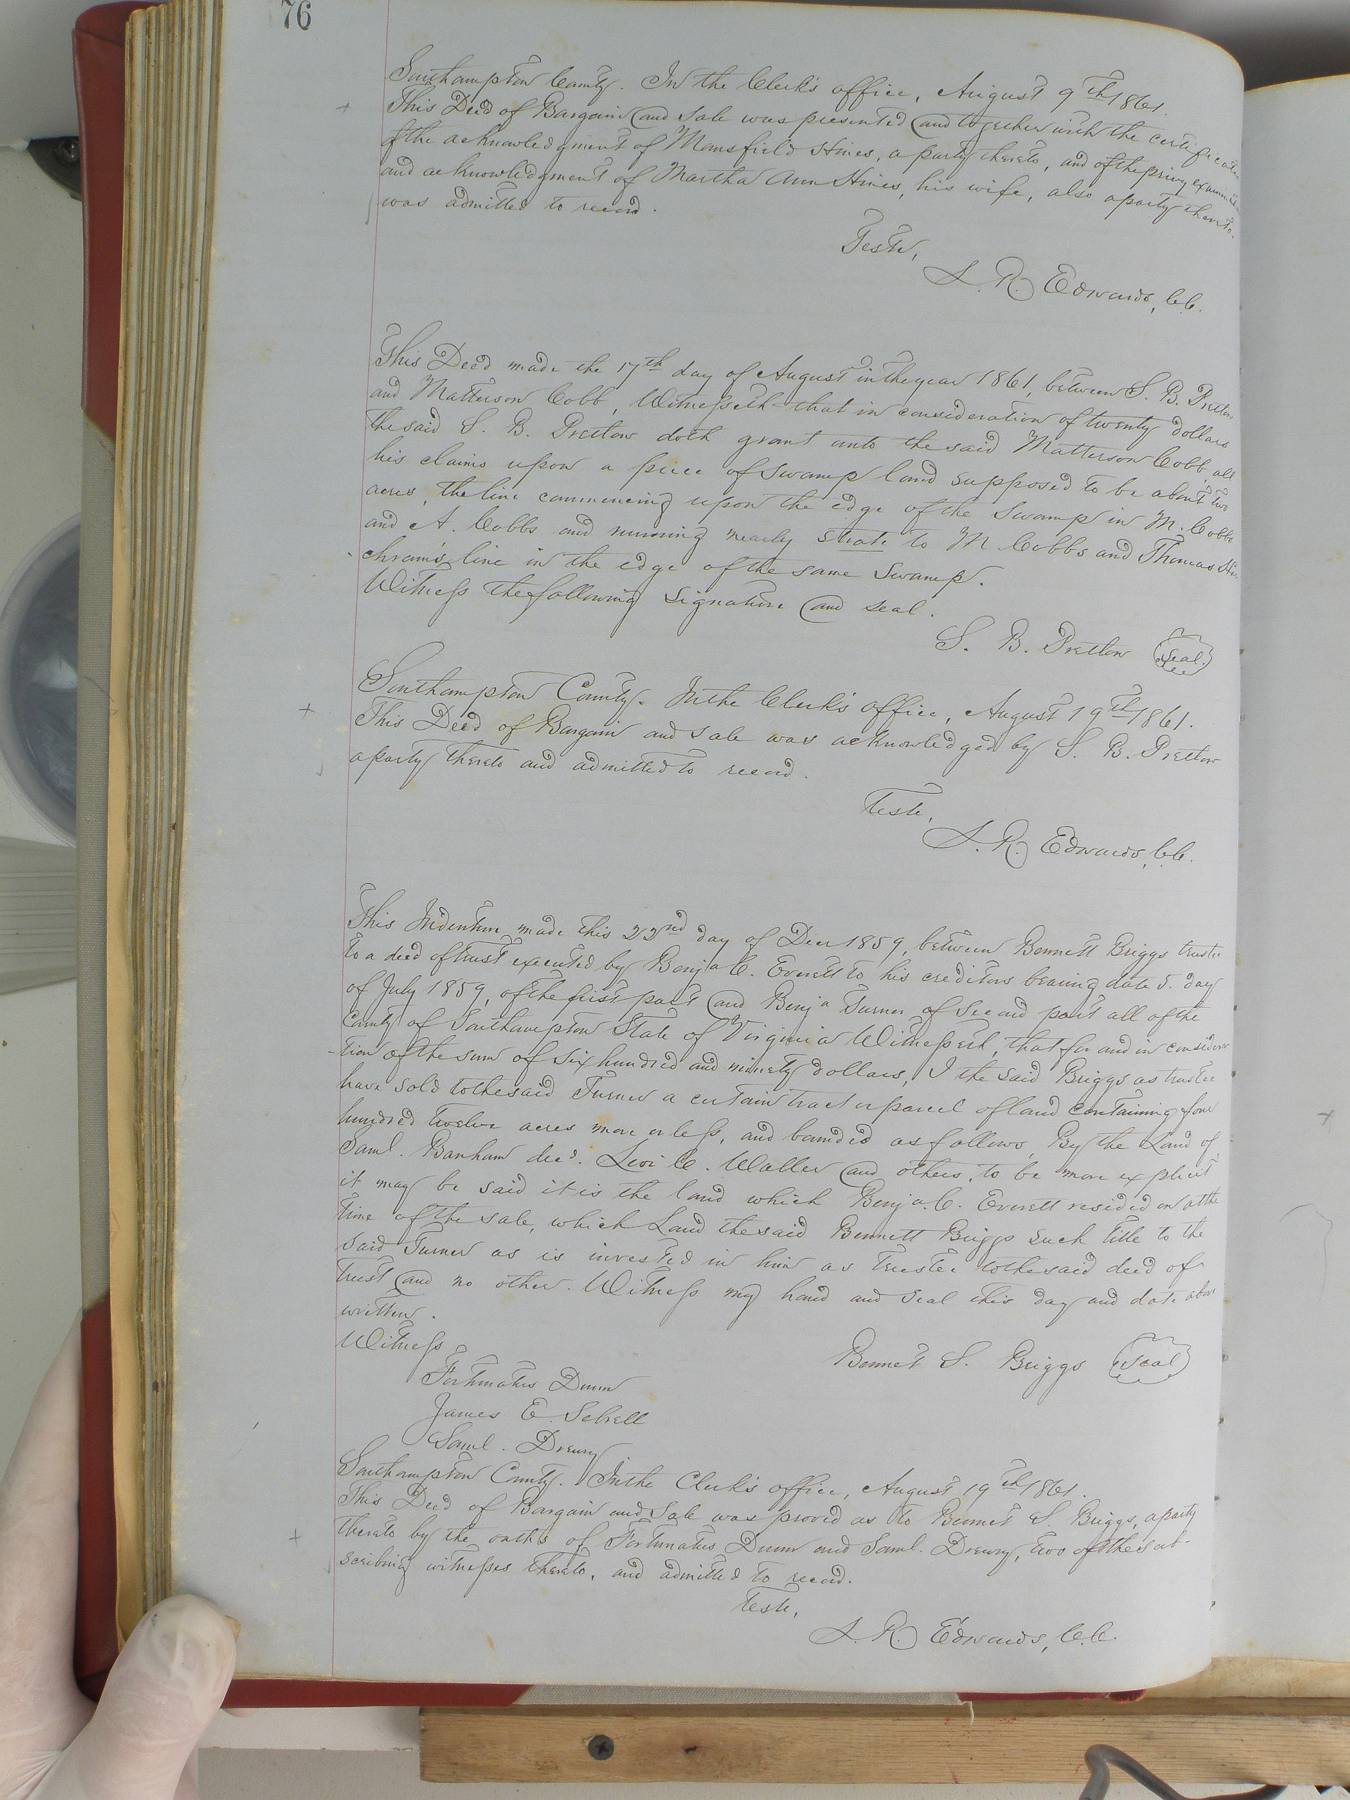 76
Southampton County. In the Clerk's office, August 9th 1861.
This Deed of Bargain and Sale was presented and together with the certificates
of the acknowledgment of Mansfield Hines, a party thereto, and of the privy examination
and acknowledgment of Martha Ann Hines, his wife, also a party thereto.
was admitted to record.
Teste,
L. R. Edwards, C.C.
This Deed made the 17th day of August in the year 1861, between S. B. Pretlow
and Matterson Cobb, Witnesseth that in consideration of twenty dollars
the said S. B. Pretlow doth grant unto the said Matterson Cobb all
his claims upon a piece of swamp land supposed to be about two
acres, the line commencing upon the edge of the Swamp in M. Cobbs
and A. Cobbs and running nearly strate to M Cobbs and Thomas
line in the edge of the same Swamp.
Witness the following signature and seal.
S. B. Pretlow Seal
Southampton County. In the Clerk's office, August 19th 1861.
This Deed of Bargain and Sale was acknowledged by S. B. Pretlow
a party thereto and admitted to record.
Teste,
L. R. Edwards, C.C.
This Indenture made this 22nd day of Decr 1859, between Bennett Briggs trustee
to a deed of trust executed by Benja C. Everett to his creditors bearing date 5. day
of July 1859, of the first part and Benja Turner of second part all of the
County of Southampton State of Virginia Witnesseth, that for and in considera-
tion of the sum of six hundred and ninety dollars, I the said Briggs as trustee
have sold to the said Turner a certain tract or parcel of land containing four
hundred twelve acres more or less, and bounded as follows, By the Land of
Saml. Banham decd. Levi C. Waller and others, to be more explicit
it may be said it is the land which Benja. C. Everett resided on at the
time of the sale, which Land the said Bennett Briggs such title to the
said Turner as is invested in him as trustee to the said deed of
trust and no other. Witness my hand and seal this day and date above
written.
Witness
Bennet S. Briggs Seal
Fortunatus Dunn
James E. Sebrell
Saml. Drewry
Southampton County. In the Clerk's office, August 19th 1861.
This Deed of Bargain and Sale was proved as to Bennet S. Briggs, a party
thereto by the oaths of Fortunatus Dunn and Saml. Drewry, two of the sub-
scribing witnesses thereto, and admitted to record.
Teste,
L. R. Edwards, C.C.